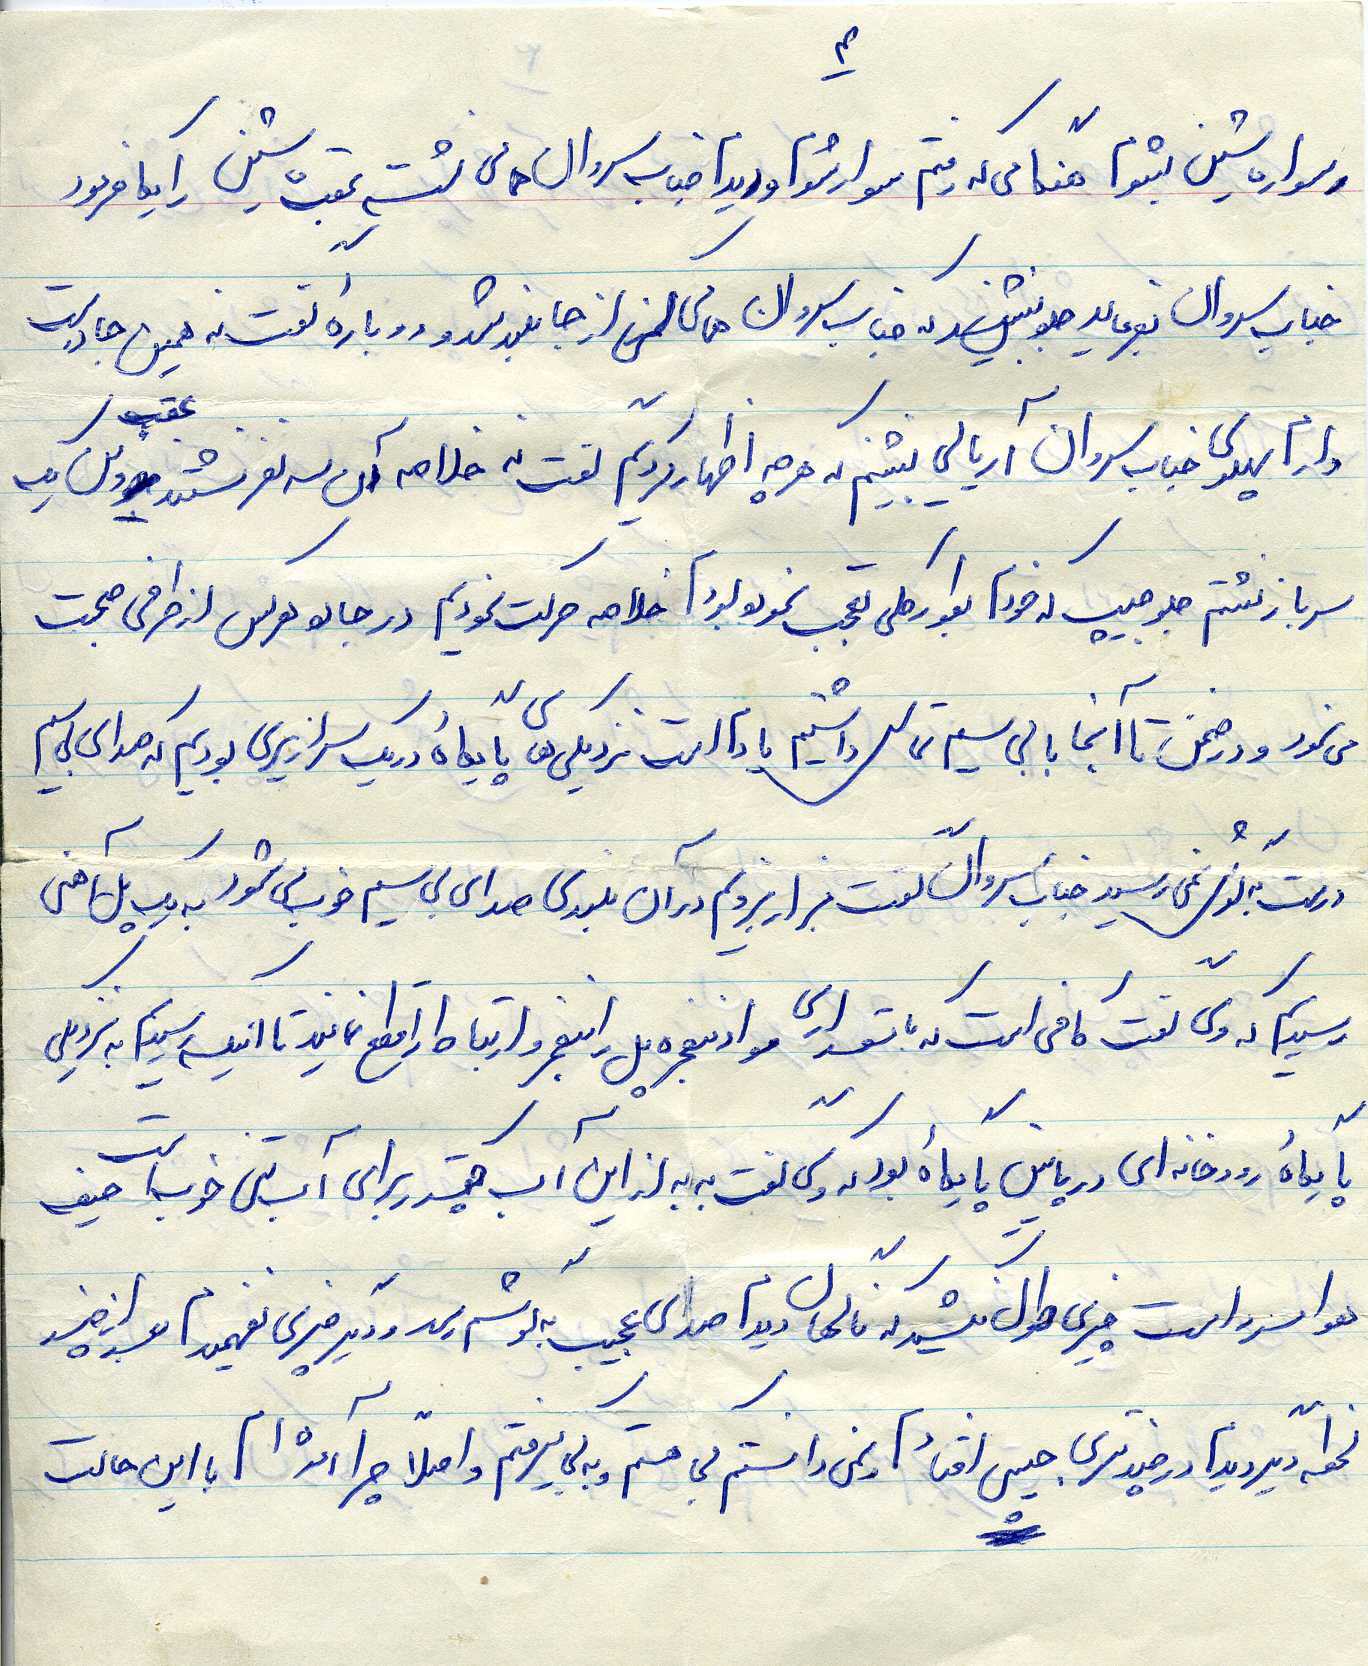 ۳
و سوار ماشین بشوم هنگامی که رفتم سوار شوم و دیدم جناب سروان همانی نشسته عقب ماشین را یکا فرمود
جناب سروان بفرمائید جلو بنشینید که جناب سروان همانی از جا بلند شد و دوباره گفت نه همین جا دوست
دارم پهلوی جناب سروان آریایی بنشینم که هر چه اظهار کردیم گفت نه خلاصه آن سه نفر نشستند عقب و من یک
سرباز نشستم جلو جیپ که خودم بطور کلی تعجب نموده بودم خلاصه حرکت نمودیم در جاده هر کس از طرفی صحبت
می نمود و در ضمن تا آنجا با بی سیم تماس داشتیم یادم است نزدیکی های پایگاه در یک سرازیری بودیم که صدای بی سیم
درست به گوش نمی رسید جناب سروان گفت بزار برویم در آن بلندی صدای بی سیم خوب می شود که به یک پل آهنی
رسیدیم که وی گفت کافی است که با مقداری مواد منفجره پل را منفجر و ارتباط را قطع نمایند تا اینکه رسیدیم به نزدیکی
پایگاه رودخانه ای در پائین پایگاه بود که وی گفت به به از این آب چقدر برای آب تنی خوب است حیف
هوا سرد است چیزی طول نکشید که ناگهان دیدم صدای عجیب به گوشم رسید و دیگر چیزی نفهمیدم بعد از چند
لحظه دیگر دیدم در چند متری جیپ افتاده ام و نمی دانستم کی هستم و به کی میرفتم و اصلا چرا آمده ام با این حالت